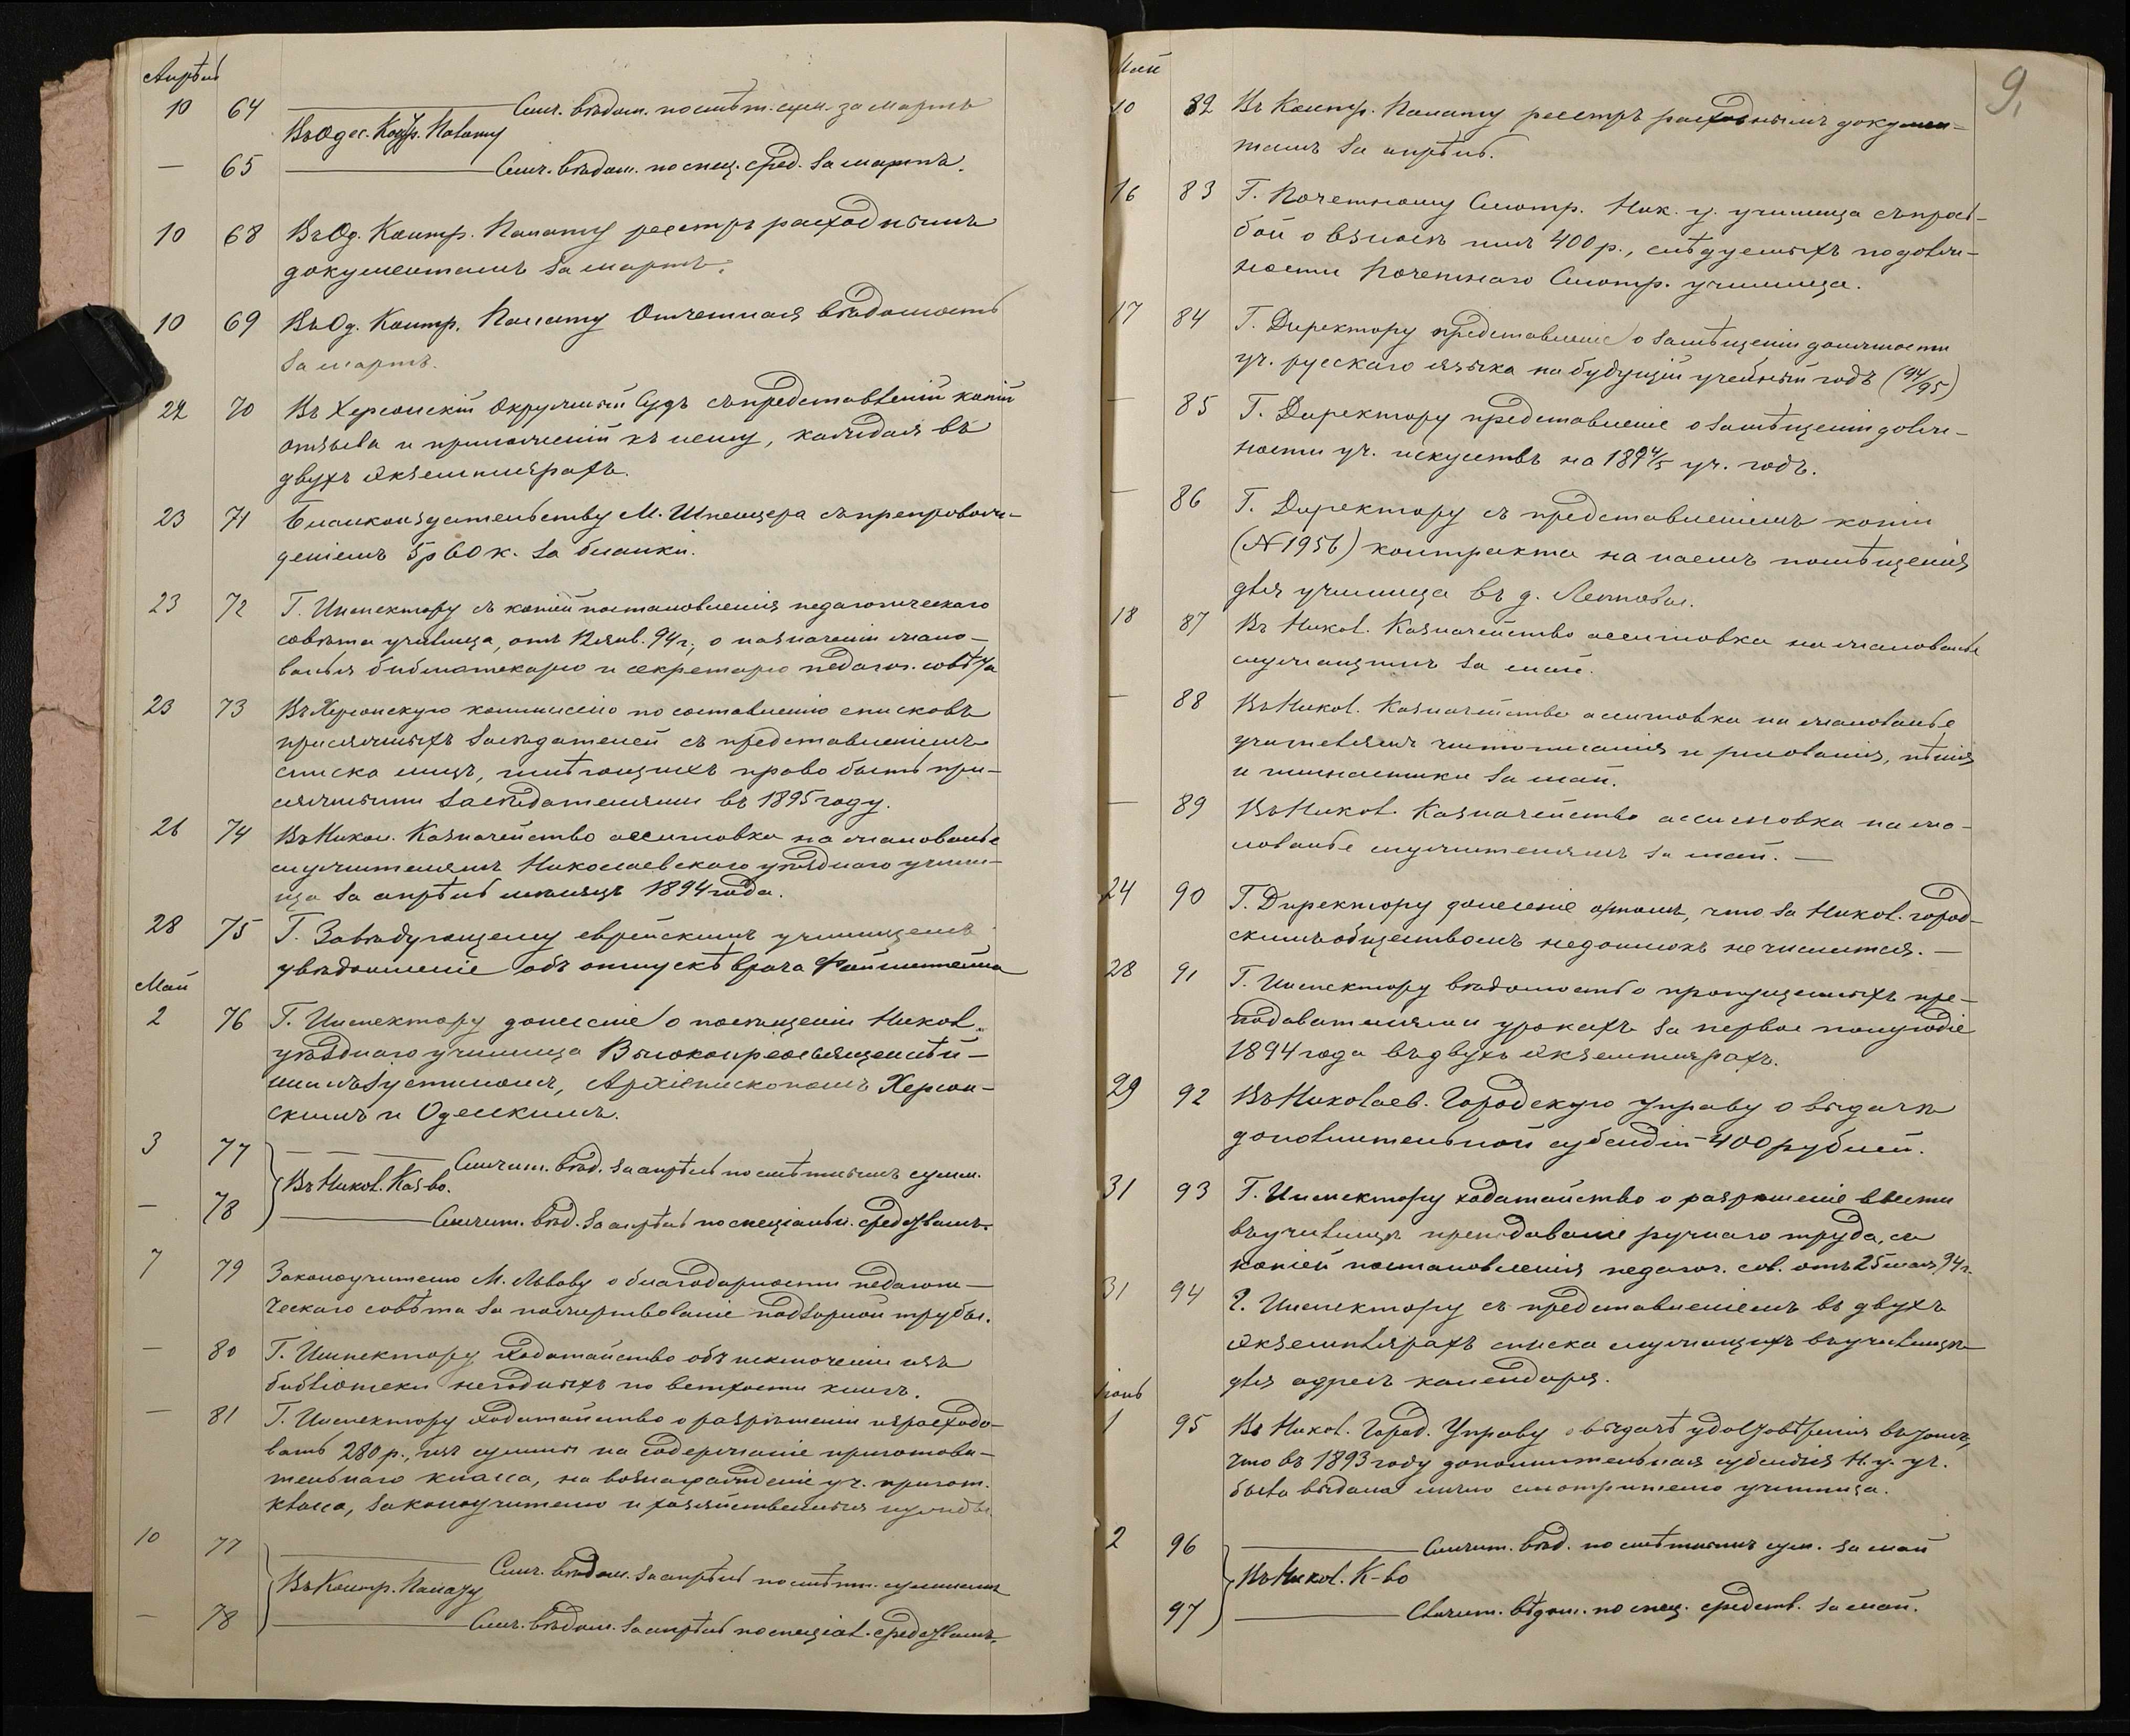 Апрѣль
10 64 Слич. вѣдом. по смѣт. сум. за мартъ
Въ Одес. Контр. Палату
— 65 Слич. вѣдом. по спец. сред. за мартъ.
10 68 Въ Од. Контр. Палату реестръ расходнымъ
документамъ за мартъ.
10 69 Въ Од. Контр. Палату Отчетная вѣдомость
за мартъ.
22 70 Въ Херсонскій Окружный Судъ съ представленіи копіи
отзыва и приложеній къ нему, каждая въ
двухъ экземплярахъ.
23 71 Бланкоиздательству М. Шпенцера съ препровож-
деніемъ 5 р 60 к. за бланки.
23 72 Г. Инспектору съ копіей постановленія педагогическаго
совѣта училища, отъ 94 г., о назначеніи жало-
ванья библіотекарю и секретарю педагог. совѣта
23 73 Въ Херсонскую коммиссію по составленію списковъ
присяжныхъ засѣдателей съ представленіемъ
списка лицъ, имѣющихъ право быть при-
сяжными засѣдателями въ 1895 году.
26 74 Въ Никол. Казначейство ассигновка на жалованье
служителямъ Николаевскаго уѣзднаго учили-
ща за апрѣль мѣсяцъ 1894 года.
28 75 Г. Завѣдующему еврейскимъ училищемъ
увѣдомленіе объ отпускѣ врача Файнштейна
Май
2 76 Г. Инспектору донесеніе о посѣщеніи Никол.
уѣзднаго училища Высокопреосвященнѣй-
шимъ Іустиномъ, Архіепископомъ Херсон-
скимъ и Одесскимъ.
3 77 Сличит. вѣд. за апрѣль по смѣтнымъ сумм.
Въ Никол. Каз-во.
— 78 Сличит. вѣд. за апрѣль по спеціальн. средствамъ.
7 79 Законоучителю М. Львову о благодарности педагоги-
ческаго совѣта за пожертвованіе подзорной трубы.
— 80 Г. Инспектору ходатайство объ исключеніи изъ
библіотеки негодныхъ по ветхости книгъ.
— 81 Г. Инспектору ходатайство о разрѣшеніи израсходо-
вать 280 р., изъ суммы на содержаніе приготови-
тельнаго класса, на вознагражденіе уч. пригот.
класса, законоучителю и хозяйственныя нужды.
10 77 Слич. вѣдом. за апрѣль по смѣтн. суммамъ
Въ Контр. Палату
— 78 Слич. вѣдом. за апрѣль по спеціал. средствамъ.
9.
Май
10 82 Въ Контр. Палату реестръ расходнымъ докумен-
тамъ за апрѣль.
16 83 Г. Почетному Смотр. Ник. у. училища съ прось-
бой о взносѣ имъ 400 р., слѣдуемыхъ по долж-
ности Почетнаго Смотр. училища.
17 84 Г. Директору представленіе о замѣщеніи должности
уч. русскаго языка на будущій учебный годъ (94/95)
— 85 Г. Директору представленіе о замѣщеніи долж-
ности уч. искуствъ на 1894/5 уч. годъ.
— 86 Г. Директору съ представленіемъ копіи
(№ 1956) контракта на наемъ помѣщенія
для училища въ д.
18 87 Въ Никол. Казначейство ассигновка на жалованье
служащимъ за май.
— 88 Въ Никол. Казначейство ассигновка на жалованье
учителямъ чистописанія и рисованія, пѣнія
и гимнастики за май.
— 89 Въ Никол. Казначейство ассигновка на жа-
лованье служителямъ за май. —
24 90 Г. Директору донесеніе о томъ, что за Никол. город-
скимъ обществомъ недоимокъ не числится. —
28 91 Г. Инспектору вѣдомость о пропущенныхъ пре-
подавателями урокахъ за первое полугодіе
1894 года въ двухъ экземплярахъ.
29 92 Въ Николаев. Городскую Управу о выдачѣ
дополнительной субсидіи 400 рублей.
31 93 Г. Инспектору ходатайство о разрѣшеніе ввести
въ училищѣ преподаваніе ручнаго труда, съ
копіей постановленія педагог. сов. отъ 25 мая 94 г.
31 94 Г. Инспектору съ представленіемъ въ двухъ
экземплярахъ списка служащихъ въ училищѣ
для адресъ календаря.
Іюнь
1 95 Въ Никол. Город. Управу о выдачѣ удостовѣренія въ томъ,
что въ 1893 году дополнительная субсидія Н. у. уч.
была выдана лично смотрителю училища.
2 96 Сличит. вѣд. по смѣтнымъ сум. за май
Въ Никол. К-во
97 Сличит. вѣдом. по спец. средств. за май.